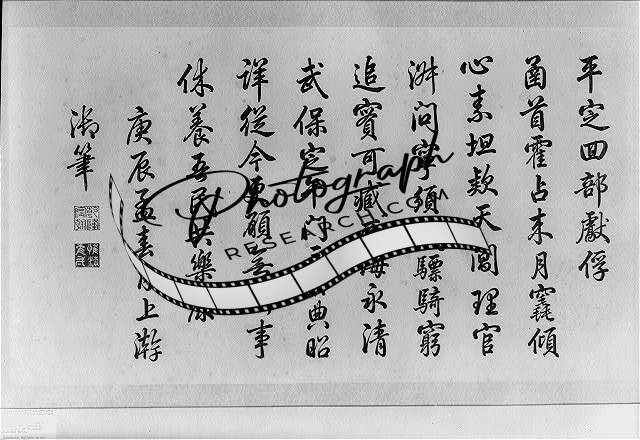 平定囬部獻俘
函首霍占來月窟傾
心素坦款天閶理官
淑問寧須驃騎窮
追實可臧海永清
武保定午門典昭
詳從今更願無事
休養吾民共樂康
庚辰孟春月上澣
御筆
Photograph
RESEARCH.COM